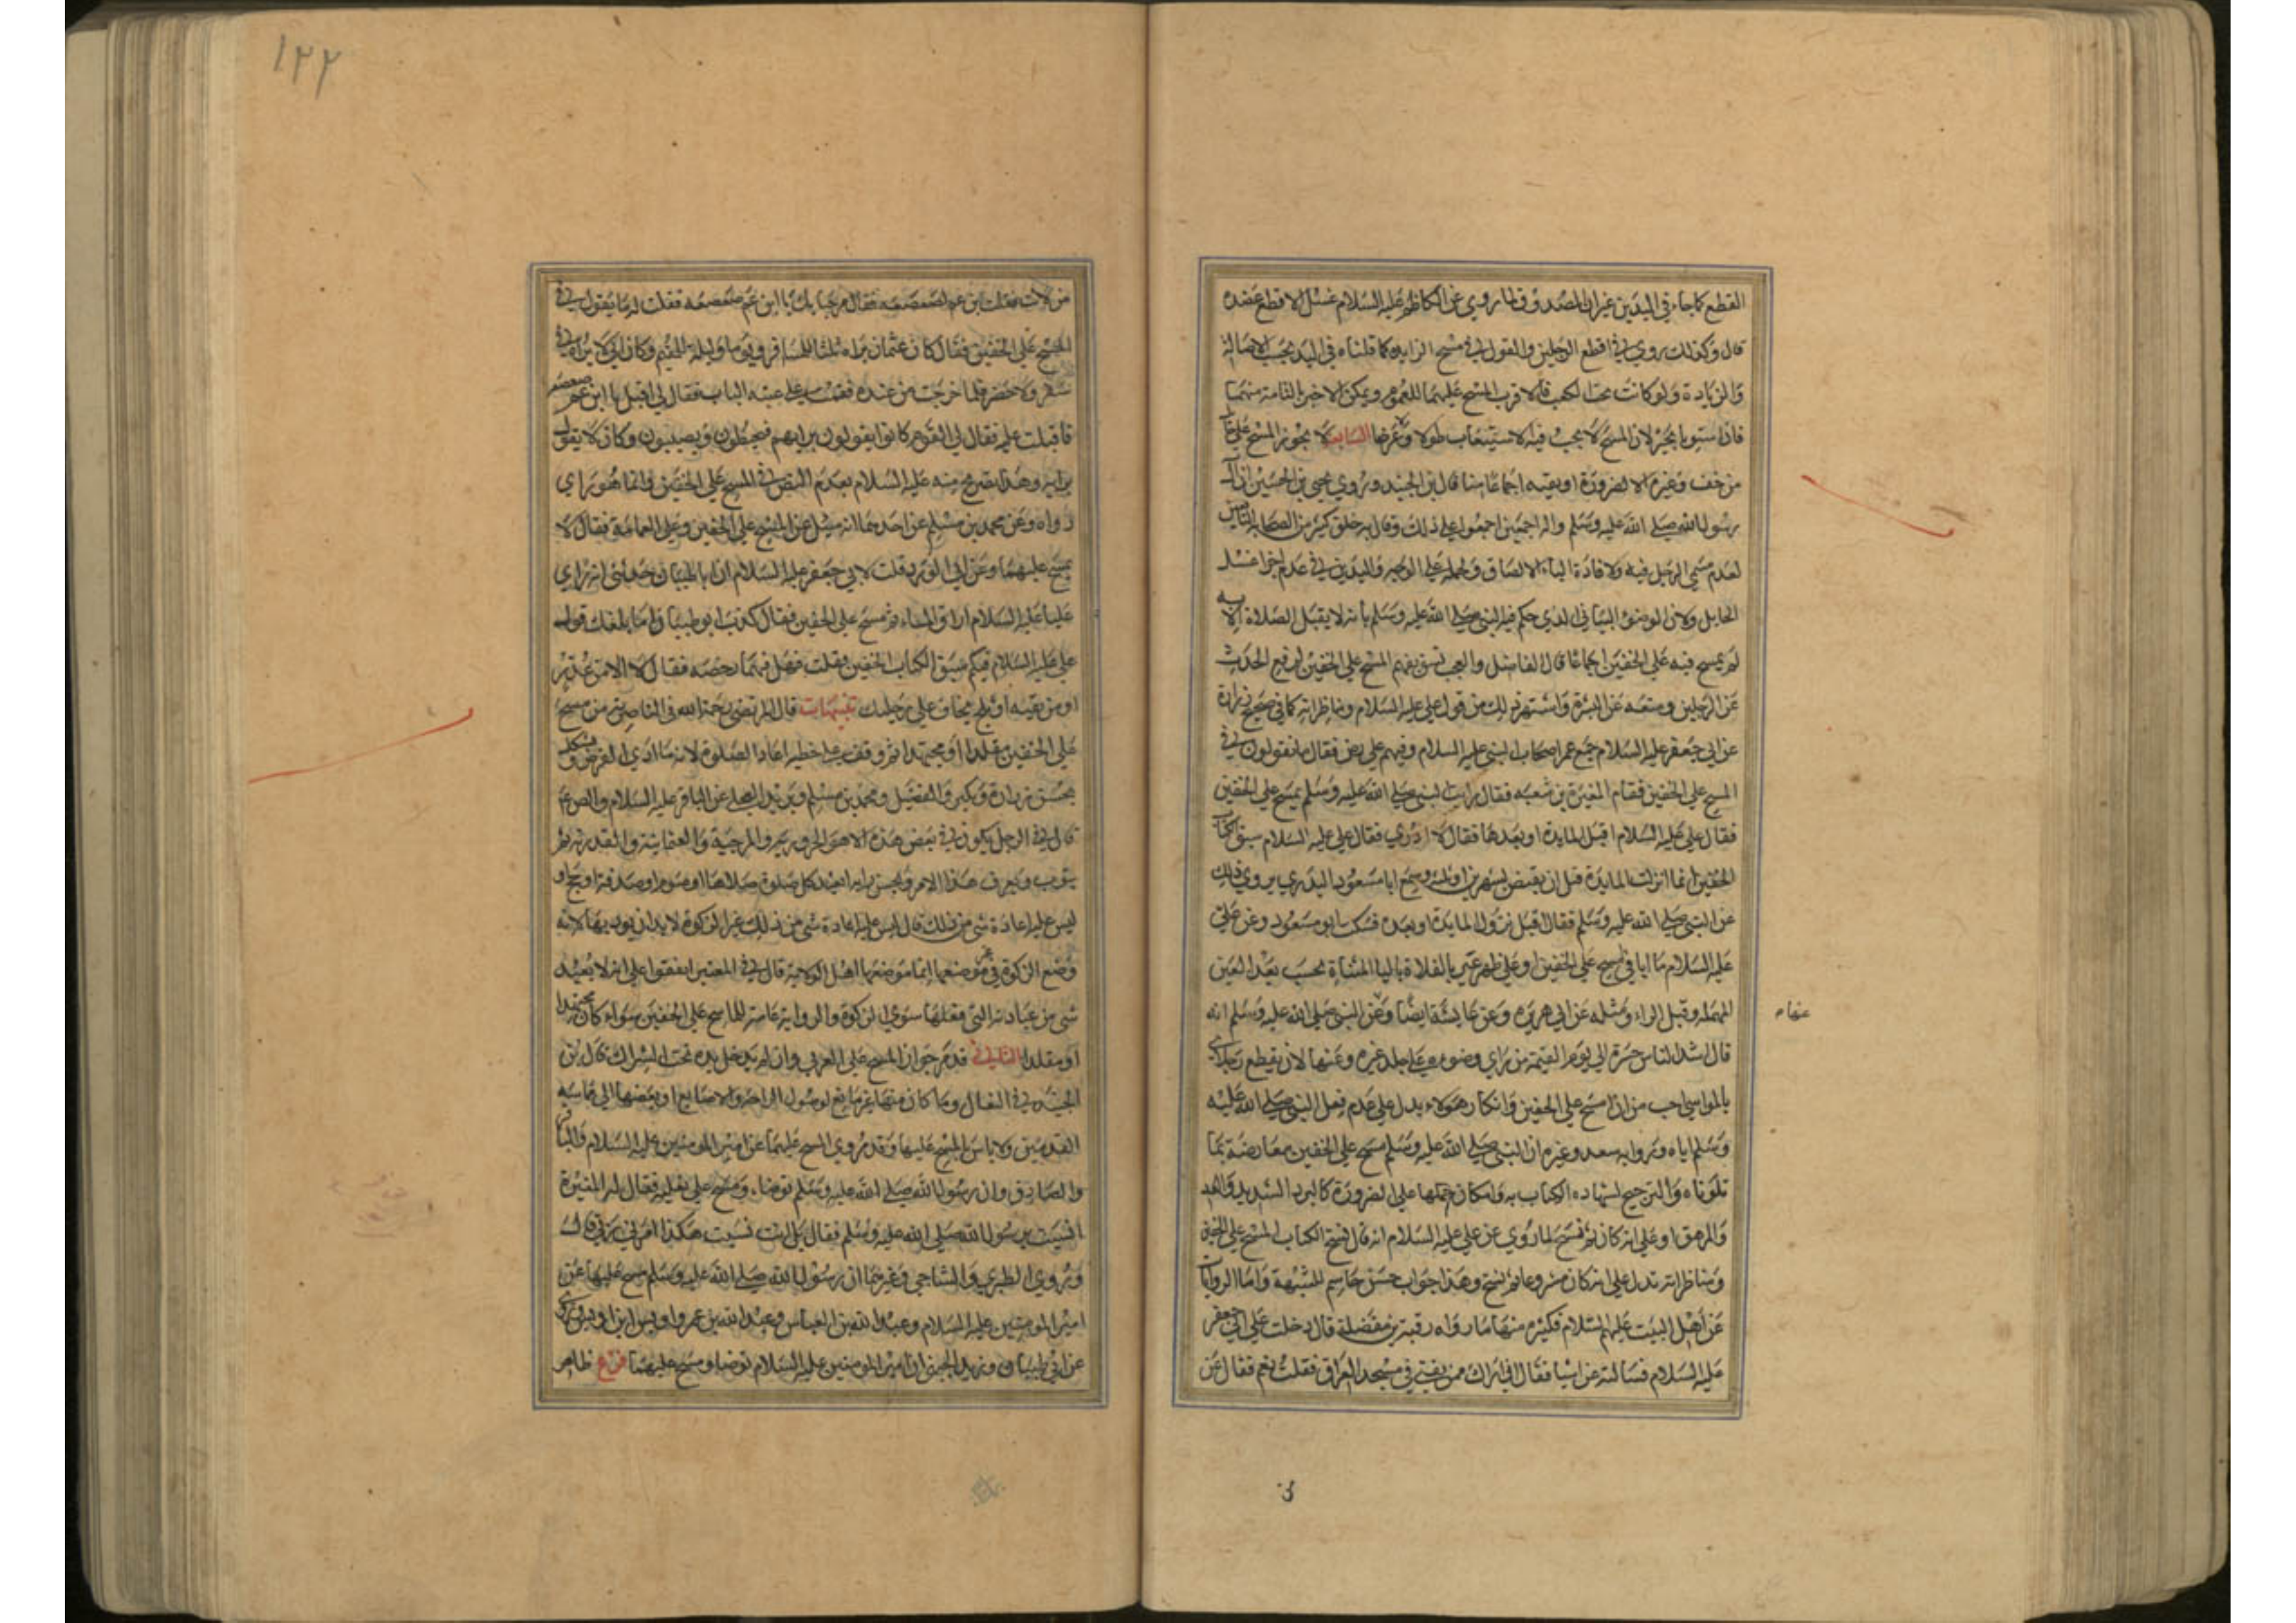 القطع كما جاء في اليدين غير ان الصدوق قال لما روي عن الكاظم عليه السلام غسل الاقطع عضده
قال وكذلك روي في اقطع الرجلين والقول في مسح الزايدة كما قلناه في اليد بحسب الاصالة
والزيادة ولو كانت تحت الكعب فالاقرب المسح عليهما للعموم ويمكن الاجتزا بالتامة منهما
فاذا استويا تخير لان المسح لا يجب فيه الاستيعاب طولا ولا عرضا السابع لا يجوز المسح على حايل
من خف وغيره الا لضرورة او تقيه اجماعا منا قال بن الجنيد وروي يحيى بن الحسين ان آل
رسول الله صلى الله عليه وسلم واله اجمعين اجمعوا على ذلك وقال به خلق كثير من الصحابة والتابعين
لعدم مسمى الرجل فيه ولافادة الباء الالصاق ولحمله على الوجه واليدين في عدم اجزا غسل
الحايل ولان الوضوء البياني الذي حكم فيه النبي صلى الله عليه وسلم بانه لا يقبل الصلاة الا به
لم يمسح فيه على الخفين اجماعا قال الفاضل والعجب تسويغهم المسح على الخفين لرفع الحدث
عن الرجلين ومنعه عن البشرة واشتهر ذلك من قول علي عليه السلام ومناظراته كما في صحيح زرارة
عن ابي جعفر عليه السلام جمع عمر اصحاب النبي عليه السلام وفيهم علي رض فقال ما تقولون في
المسح على الخفين فقام المغيرة بن شعبه فقال رايت النبي صلى الله عليه وسلم يمسح على الخفين
فقال علي عليه السلام اقبل المايدة او بعدها فقال لا ادري فقال علي عليه السلام سبق الكتاب
الخفين انما انزلت المايدة قبل ان يقبض بشهرين او ثلثه وسمع ابا مسعود البدري يروي ذلك
عن النبي صلى الله عليه وسلم فقال اقبل نزول المايدة او بعده فسكت ابو مسعود وعن علي
عليه السلام ما ابالي امسح على الخفين او على ظهر عير بالفلاة بالياء المثناة تحت بعد العين
المهمله وقبل الراء ومثله عن ابي هريره وعن عايشة ايضا وعن النبي صلى الله عليه وسلم انه
عنها م
قال اشد الناس حسرة الى يوم القيمة من راى وضوءه على جلد غيره وعنها لان يقطع رجلاي
بالمواسي احب من ان امسح على الخفين وانكار هولاء يدل على عدم فعل النبي صلى الله عليه
وسلم اياه وروايه سعد وغيره ان النبي صلى الله عليه وسلم مسح على الخفين معارضة بما
تلوناه والترجيح لشهاده الكتاب به وامكان حملها على الضرورة كالبرد الشديد
او على انه كان ثم نسخ لما روي عن علي عليه السلام انه قال نسخ الكتاب المسح على الخفين
ومناظراته تدل على انه كان مشروعا ثم نسخ وهذا جواب حسن حاسم للشبهة واما الروايات
عن اهل البيت عليهم السلام فكثيره منها ما رواه رقبة بن مصقلة قال دخلت على ابي جعفر
عليه السلام فسالته عن اشيا فقال اني اراك ممن يفتي في مسجد العراق فقلت نعم فقال من
١٢٢
من انت فقلت ابن عم لصعصعه فقال مرحبا بك يا ابن عم صعصعه فقلت له ما تقول في
المسح على الخفين فقال كان عثمان يراه ثلثا للمسافر ويوما وليلة للمقيم وكان ابي لا يراه في
سفر ولا حضر فلما خرجت من عنده فقمت على عتبه الباب فقال لي اقبل يا ابن عم صعصعه
فاقبلت عليه فقال لي القوم كانوا يقولون برايهم فيخطئون ويصيبون وكان لا يقول
برايه وهذا تصريح منه عليه السلام بعدم النص في المسح على الخفين وانما هو راي
رواه وعن محمد بن مسلم عن احدهما انه سئل عن المسح على الخفين وعلى العمامة فقال لا
يمسح عليهما وعن ابي الورد قلت لابي جعفر عليه السلام ان ابا ظبيان حدثني انه راى
عليا عليه السلام اراق الماء ثم مسح على الخفين فقال كذب ابو ظبيان اما بلغك قول
علي عليه السلام فيكم سبق الكتاب الخفين فقلت فهل فيهما رخصه فقال لا الا من عدو
او من تقيه او ثلج تخاف على رجليك تنبيهات قال المرتضى رحمة الله في الناصرية من مسح
على الخفين مقلدا او مجتهدا ثم وقف على خطيه اعاد الصلوة لانه ما ادى الفرض ويشكل
بحسن زرارة وبكير والفضيل ومحمد بن مسلم وبريد العجلي عن الباقر عليه السلام والص ع م
قال في الرجل يكون في بعض هذه الاهوا الحرورية والمرجية والعثمانية والقدرية ثم
يتوب ويعرف هذا الامر ويحسن رايه ايعيد كل صلوة صلاها او صوم او صدقة او حج او
ليس عليه اعادة شي من ذلك قال ليس عليه اعادة شي من ذلك غير الزكوة لا بد ان يوديها لانه
وضع الزكوة في غير موضعها انما موضعها اهل الولاية قال في المعتبر اتفقوا على انه لا يعيد
شي من عباداته التي فعلها سوى الزكوة والرواية عامة للماسح على الخفين سواء كان مجتهدا
او مقلدا الثاني قدم جواز المسح على العربي وان لم يدخل يده تحت الشراك قال بن
الجنيد في النعال وما كان منها غير مانع لوصول الراحة والاصابع او بعضها الى مماسه
القدمين ولا باس بالمسح عليها وقد روي المسح عليهما عن امير المومنين عليه السلام والباقر
والصادق وان رسول الله صلى الله عليه وسلم توضاء ومسح على نعليه فقال له المغيرة
انسيت يا رسول الله صلى الله عليه وسلم فقال بل انت نسيت هكذا امرني ربي قال
وروي الطبري والشاجي وغيرهما ان رسول الله صلى الله عليه وسلم مسح عليها عن
امير المومنين عليه السلام وعبد الله بن العباس وعبد الله بن عمر واوس ابن اوس وروى
عن ابي ظبيان وزيد الجهني ان امير المومنين عليه السلام توضا ومسح عليهما فرع ظاهر